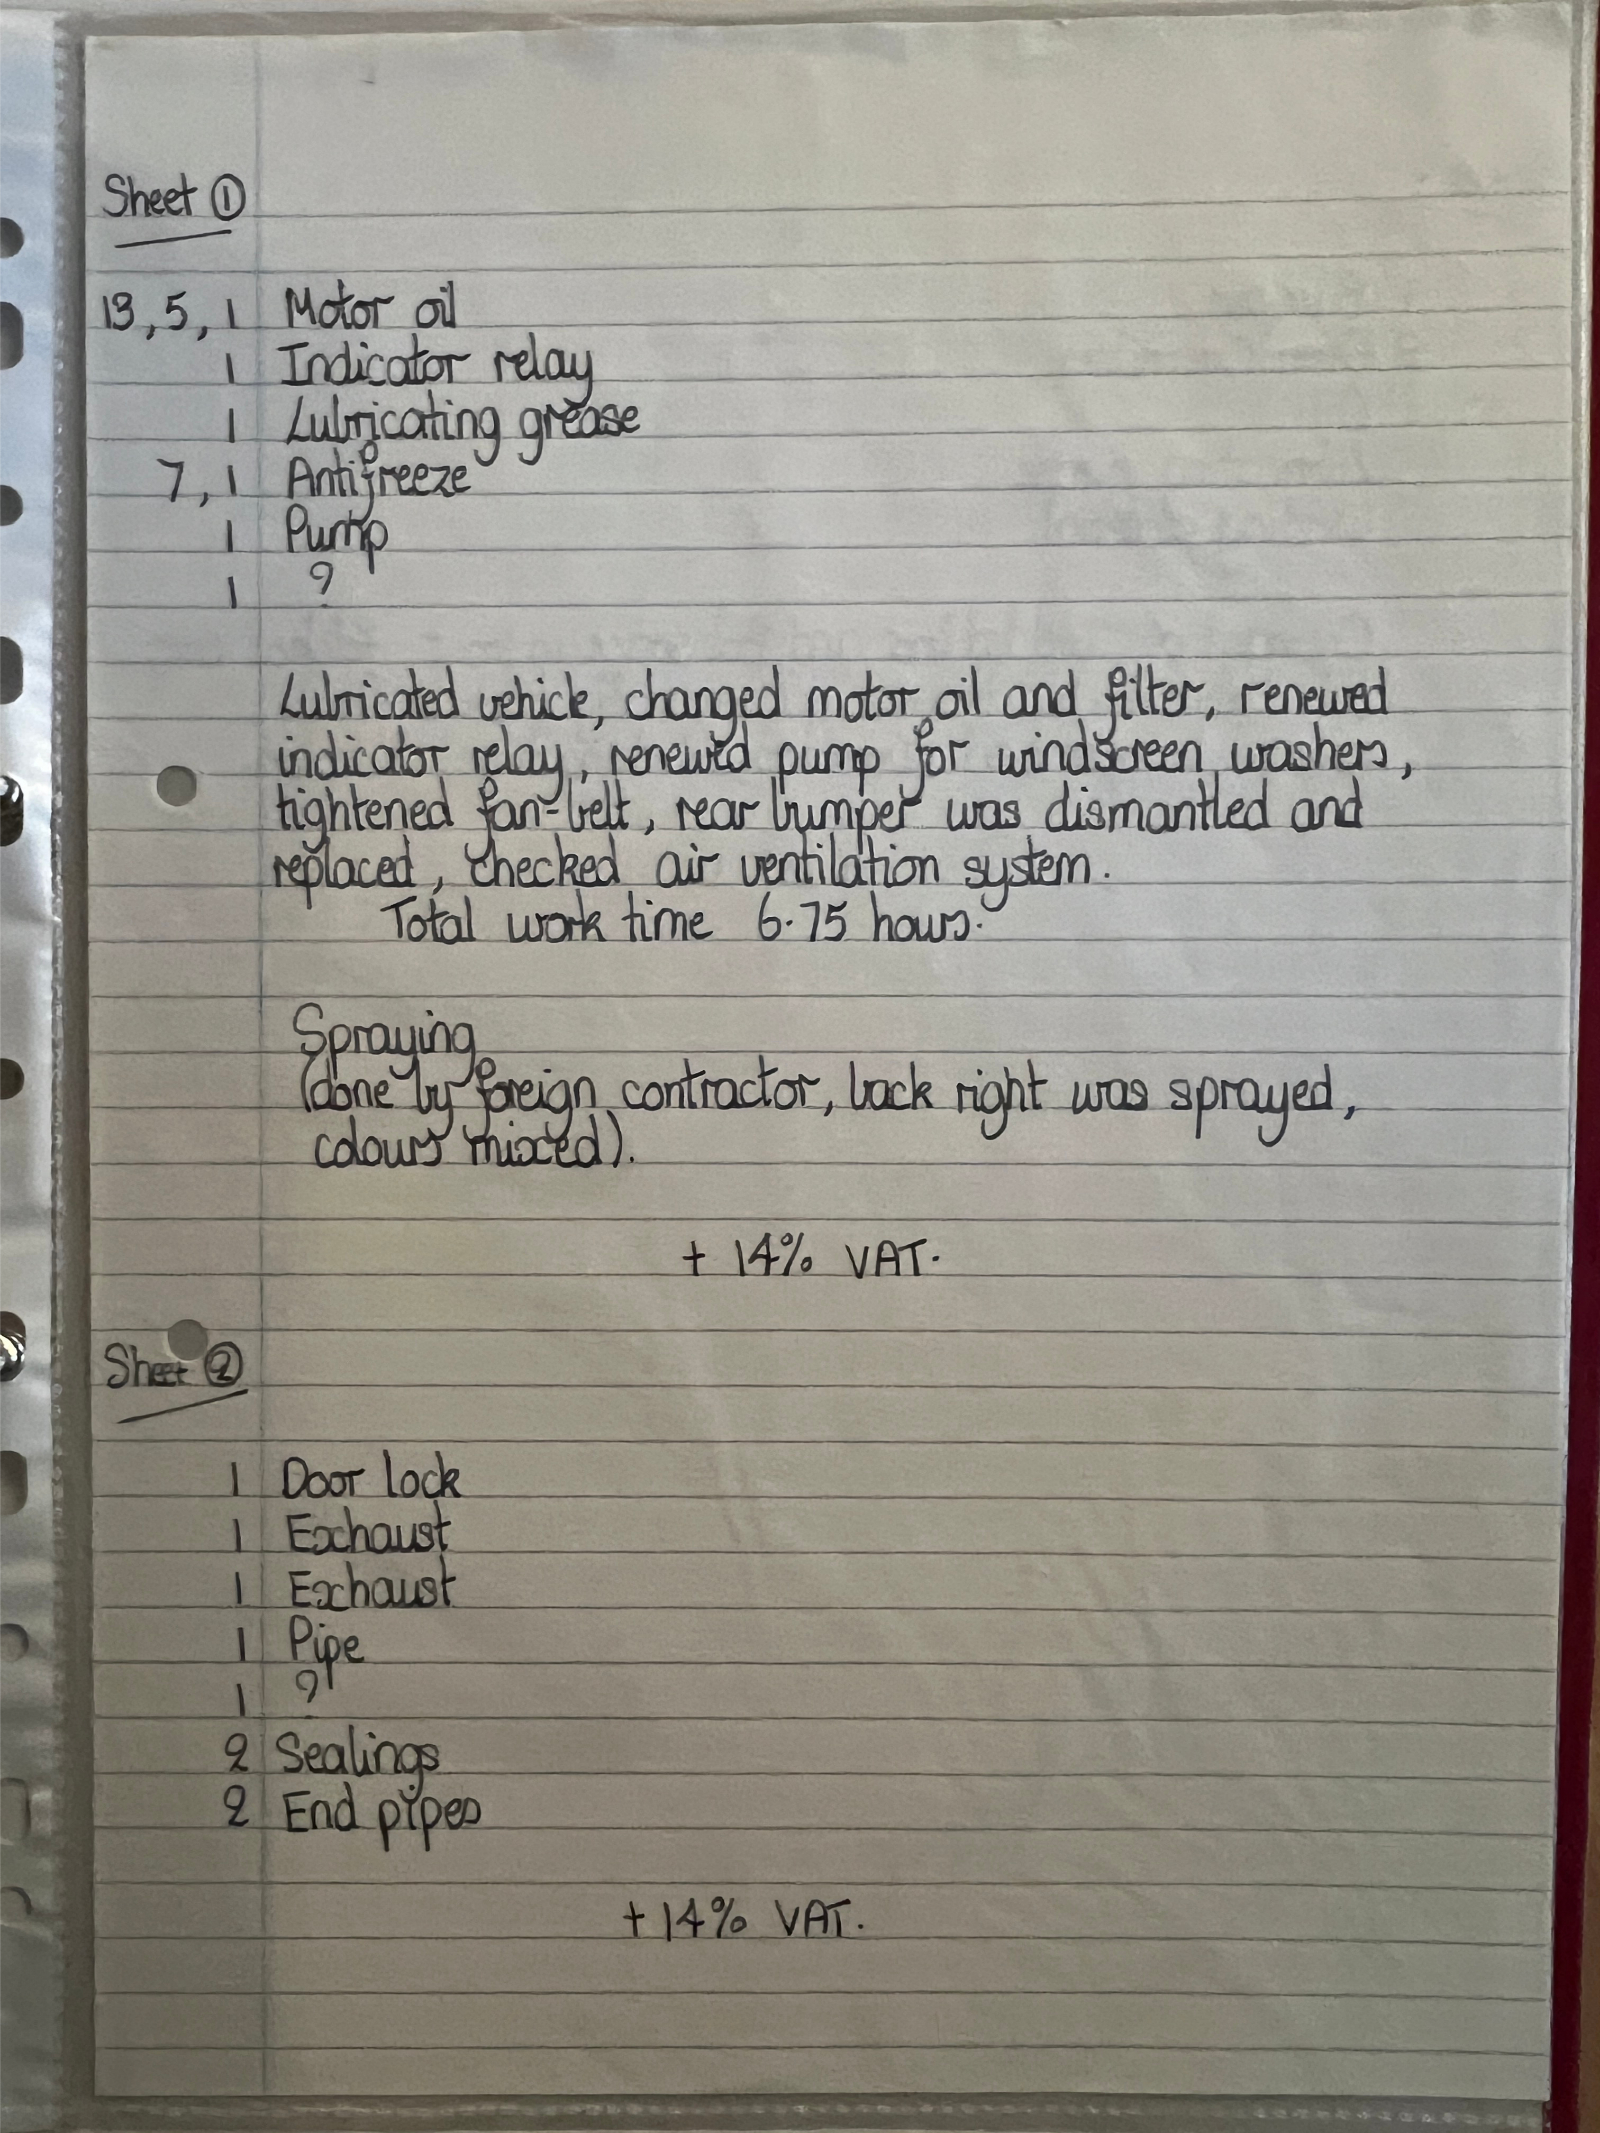 Sheet ①
13,5,1 Motor oil
1 Indicator relay
1 Lubricating grease
7,1 Antifreeze
1 Pump
1 ?
Lubricated vehicle, changed motor oil and filter, renewed
indicator relay, renewed pump for windscreen washers,
tightened fan-belt, rear bumper was dismantled and
replaced, checked air ventilation system.
Total work time 6.75 hours.
Spraying
(done by foreign contractor, back right was sprayed,
colours mixed).
+ 14% VAT.
Sheet ②
1 Door lock
1 Exhaust
1 Exhaust
1 Pipe
1 ?
2 Sealings
2 End pipes
+ 14% VAT.